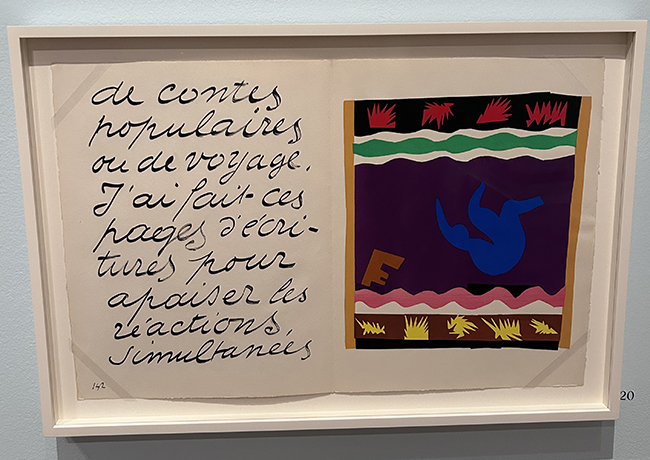 de contes
populaires
ou de voyage.
J'ai fait ces
pages d'écri-
tures pour
apaiser les
réactions
simultanées
142
20